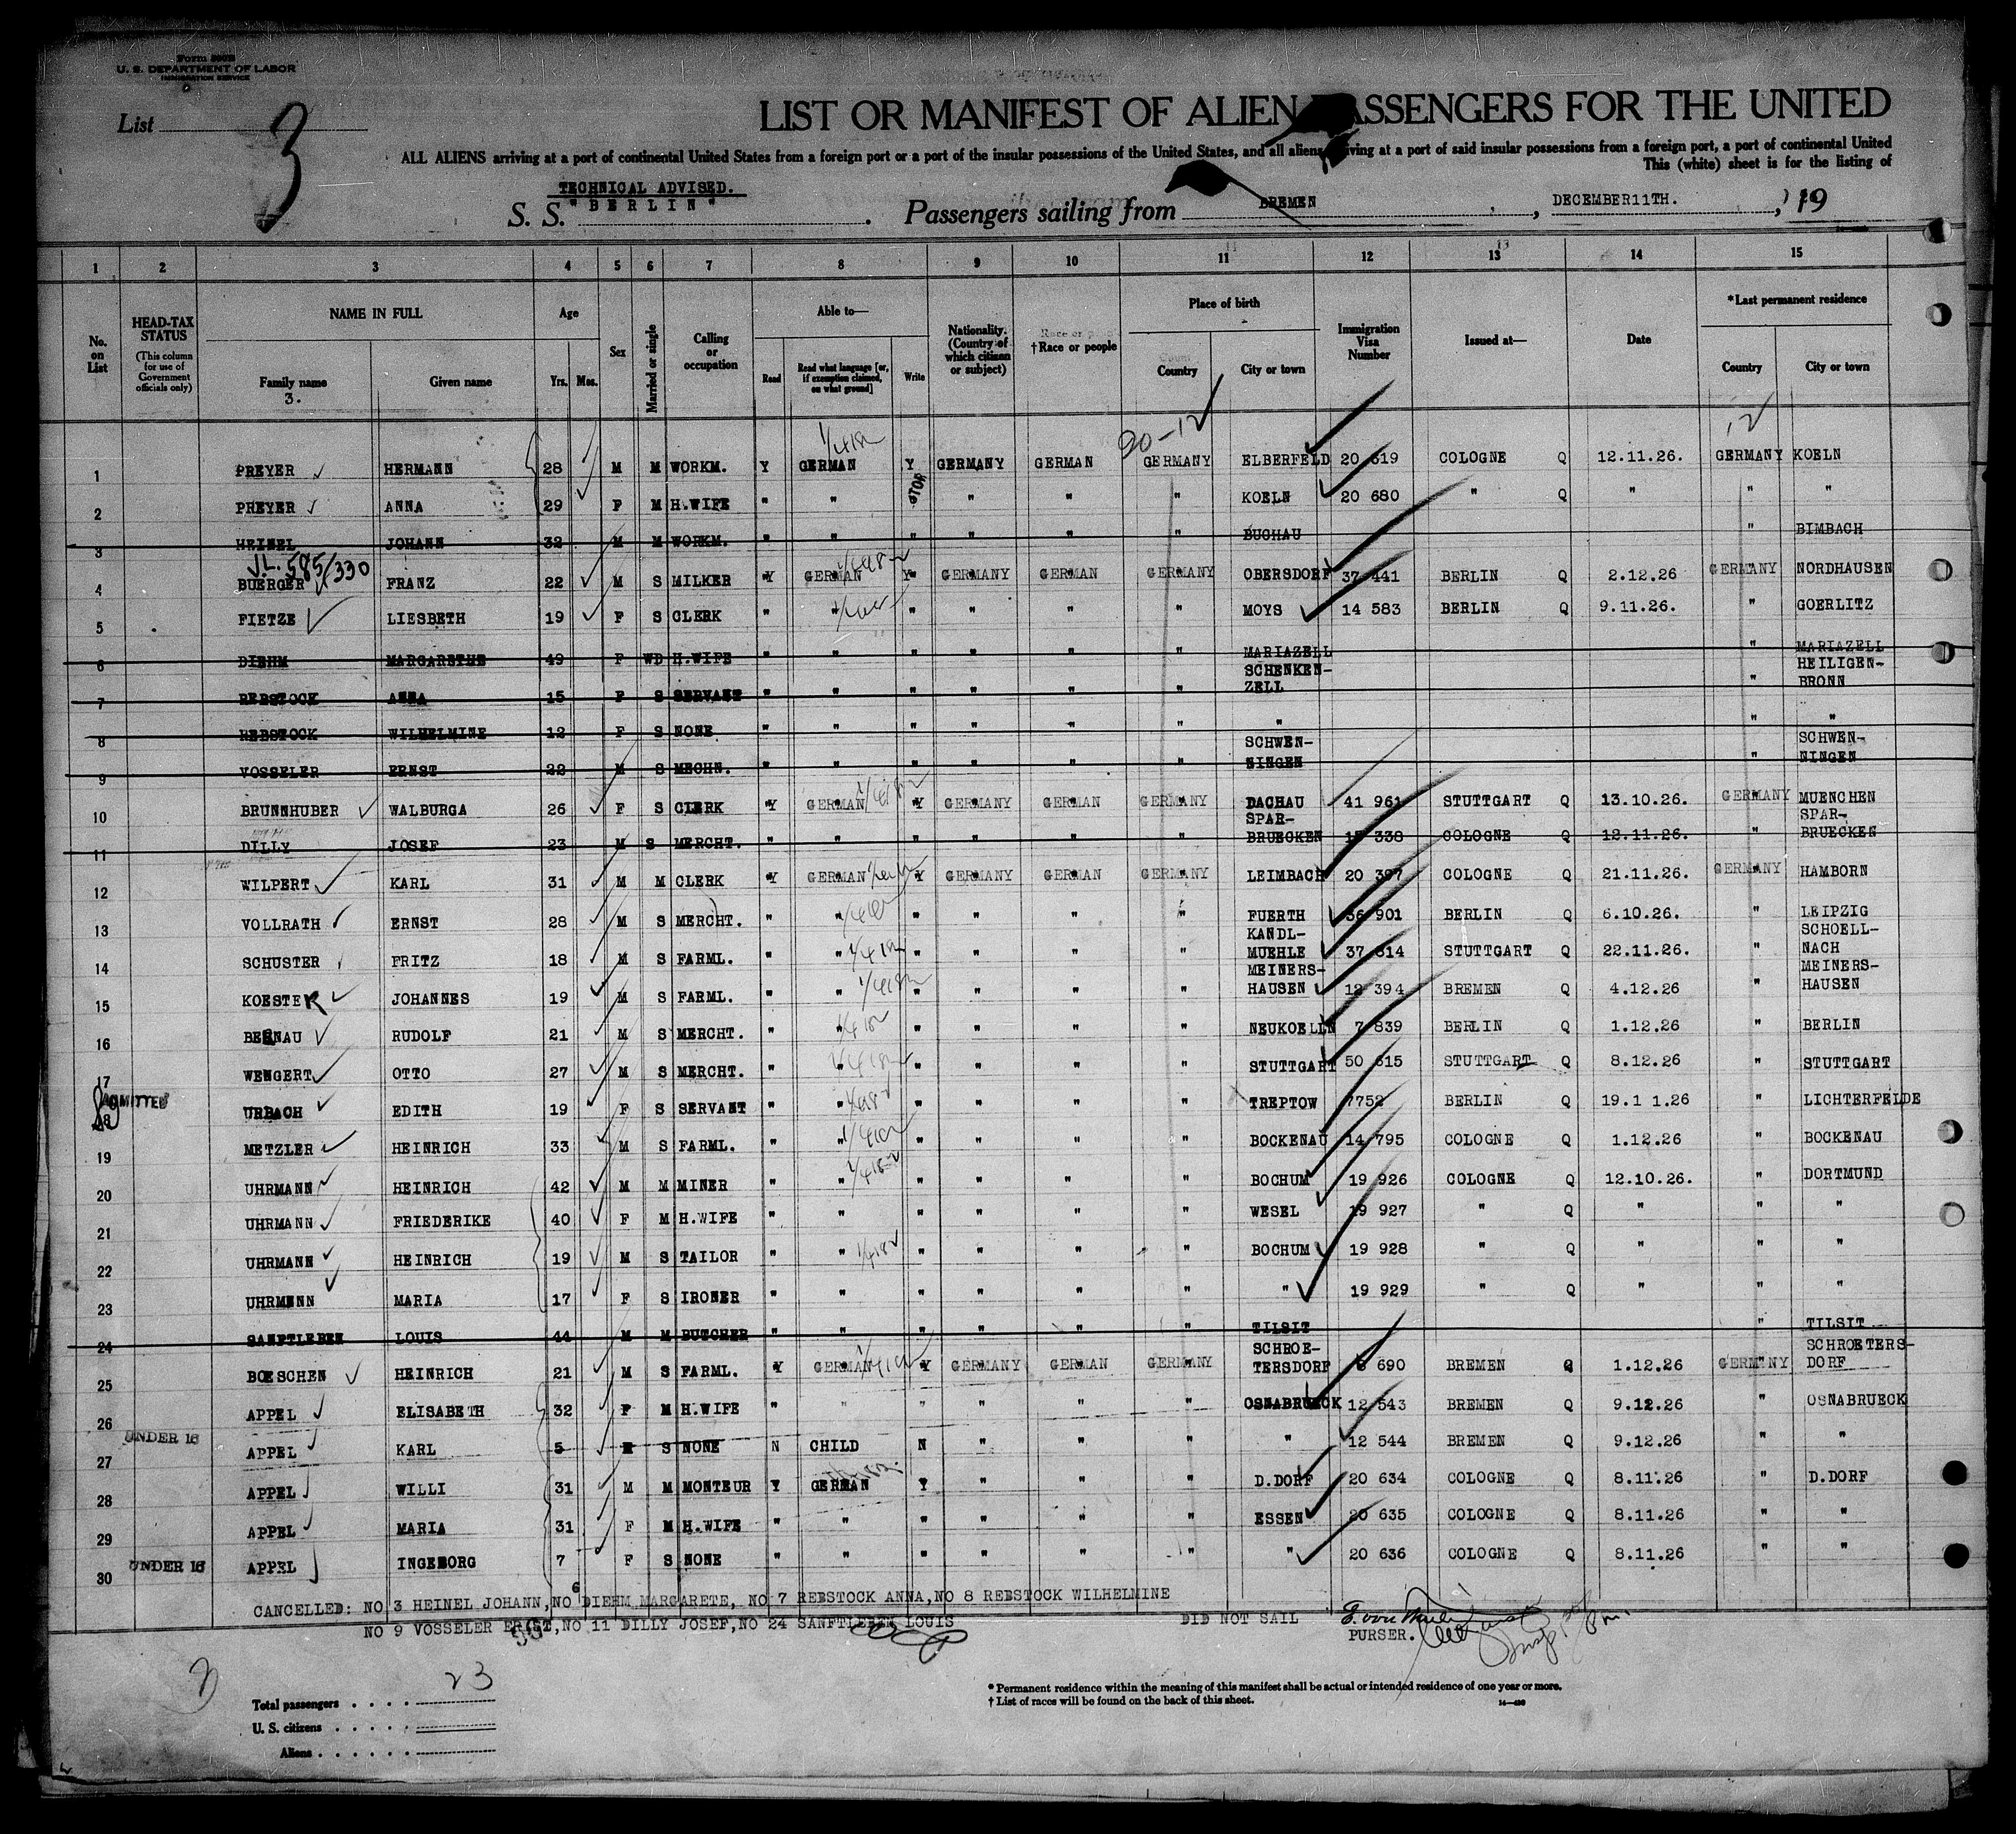 Form 500B
U. S. DEPARTMENT OF LABOR
IMMIGRATION SERVICE
List 3
LIST OR MANIFEST OF ALIEN PASSENGERS FOR THE UNITED
ALL ALIENS arriving at a port of continental United States from a foreign port or a port of the insular possessions of the United States, and all aliens arriving at a port of said insular possessions from a foreign port, a port of continental United
This (white) sheet is for the listing of
TECHNICAL ADVISED.
S. S. "BERLIN". Passengers sailing from BREMEN, DECEMBER11TH., 19
1 2 3 4 5 6 7 8 9 10 11 12 13 14 15
No. on List
HEAD-TAX STATUS (This column for use of Government officials only)
NAME IN FULL Family name Given name
3.
Age Yrs. Mos.
Sex
Married or single
Calling or occupation
Able to— Read Read what language [or, if exemption claimed, on what ground] Write
Nationality. (Country of which citizen or subject)
†Race or people
Place of birth Country City or town
Immigration Visa Number
Issued at—
Date
*Last permanent residence Country City or town
90-12 12
1 PREYER HERMANN 28 M M WORKM. Y GERMAN Y GERMANY GERMAN GERMANY ELBERFELD 20 619 COLOGNE Q 12.11.26. GERMANY KOELN
2 PREYER ANNA 29 F M H.WIFE " " " " " KOELN 20 680 " Q " " "
3 HEINEL JOHANN 32 M M WORKM. " " " " " " BUCHAU " BIMBACH
V.L. 585/330
4 BUERGER FRANZ 22 M S MILKER Y GERMAN Y GERMANY GERMAN GERMANY OBERSDORF 37 441 BERLIN Q 2.12.26 GERMANY NORDHAUSEN
5 FIETZE LIESBETH 19 F S CLERK " " " " " " MOYS 14 583 BERLIN Q 9.11.26. " GOERLITZ
6 DIEHM MARGARETHE 49 F WD H.WIFE " " " " " " MARIAZELL " MARIAZELL
7 REBSTOCK ANNA 15 F S SERVANT " " " " " " SCHENKEN-ZELL " HEILIGEN-BRONN
8 REBSTOCK WILHELMINE 12 F S NONE " " " " " " " " "
9 VOSSELER ERNST 22 M S MECHN. " " " " " " SCHWEN-NINGEN " SCHWEN-NINGEN
10 BRUNNHUBER WALBURGA 26 F S CLERK Y GERMAN Y GERMANY GERMAN GERMANY DACHAU 41 961 STUTTGART Q 13.10.26. GERMANY MUENCHEN
11 DILLY JOSEF 23 M S MERCHT. " " " " " " SPAR-BRUECKEN 338 COLOGNE Q 12.11.26. " SPAR-BRUECKEN
12 WILPERT KARL 31 M M CLERK Y GERMAN Y GERMANY GERMAN GERMANY LEIMBACH 20 397 COLOGNE Q 21.11.26. GERMANY HAMBORN
13 VOLLRATH ERNST 28 M S MERCHT. " " " " " " FUERTH 36 901 BERLIN Q 6.10.26. " LEIPZIG
14 SCHUSTER FRITZ 18 M S FARML. " " " " " " KANDL-MUEHLE 37 614 STUTTGART Q 22.11.26. " SCHOELL-NACH
15 KOESTER JOHANNES 19 M S FARML. " " " " " " MEINERS-HAUSEN 12 394 BREMEN Q 4.12.26 " MEINERS-HAUSEN
16 BERNAU RUDOLF 21 M S MERCHT. " " " " " " NEUKOELLN 7 839 BERLIN Q 1.12.26 " BERLIN
17 WENGERT OTTO 27 M S MERCHT. " " " " " " STUTTGART 50 615 STUTTGART Q 8.12.26 " STUTTGART
ADMITTED
18 URBACH EDITH 19 F S SERVANT " " " " " " TREPTOW 7752 BERLIN Q 19.1 1.26 " LICHTERFELDE
19 METZLER HEINRICH 33 M S FARML. " " " " " " BOCKENAU 14 795 COLOGNE Q 1.12.26 " BOCKENAU
20 UHRMANN HEINRICH 42 M M MINER " " " " " " BOCHUM 19 926 COLOGNE Q 12.10.26. " DORTMUND
21 UHRMANN FRIEDERIKE 40 F M H.WIFE " " " " " " WESEL 19 927 " Q " " "
22 UHRMANN HEINRICH 19 M S TAILOR " " " " " " BOCHUM 19 928 " Q " " "
23 UHRMANN MARIA 17 F S IRONER " " " " " " " 19 929 " Q " " "
24 SANFTLEBEN LOUIS 44 M M BUTCHER " " " " " " TILSIT " TILSIT
25 BOESCHEN HEINRICH 21 M S FARML. Y GERMAN Y GERMANY GERMAN GERMANY SCHROE-TERSDORF 690 BREMEN Q 1.12.26 GERMANY SCHROETERS-DORF
26 APPEL ELISABETH 32 F M H.WIFE " " " " " " OSNABRUECK 12 543 BREMEN Q 9.12.26 " OSNABRUECK
27 UNDER 16 APPEL KARL 5 M S NONE N CHILD N " " " " 12 544 BREMEN Q 9.12.26 " "
28 APPEL WILLI 31 M M MONTEUR Y GERMAN Y " " " D.DORF 20 634 COLOGNE Q 8.11.26 " D.DORF
29 APPEL MARIA 31 F M H.WIFE " " " " " " ESSEN 20 635 COLOGNE Q 8.11.26 " "
30 UNDER 16 APPEL INGEBORG 7 F S NONE " " " " " " " 20 636 COLOGNE Q 8.11.26 " "
CANCELLED: NO 3 HEINEL JOHANN, NO 6 DIEHM MARGARETE, NO 7 REBSTOCK ANNA, NO 8 REBSTOCK WILHELMINE
NO 9 VOSSELER ERNST, NO 11 DILLY JOSEF, NO 24 SANFTLEBEN LOUIS DID NOT SAIL PURSER.
Total passengers . . . . 23
U. S. citizens . . . . .
Aliens . . . . . .
* Permanent residence within the meaning of this manifest shall be actual or intended residence of one year or more.
† List of races will be found on the back of this sheet.